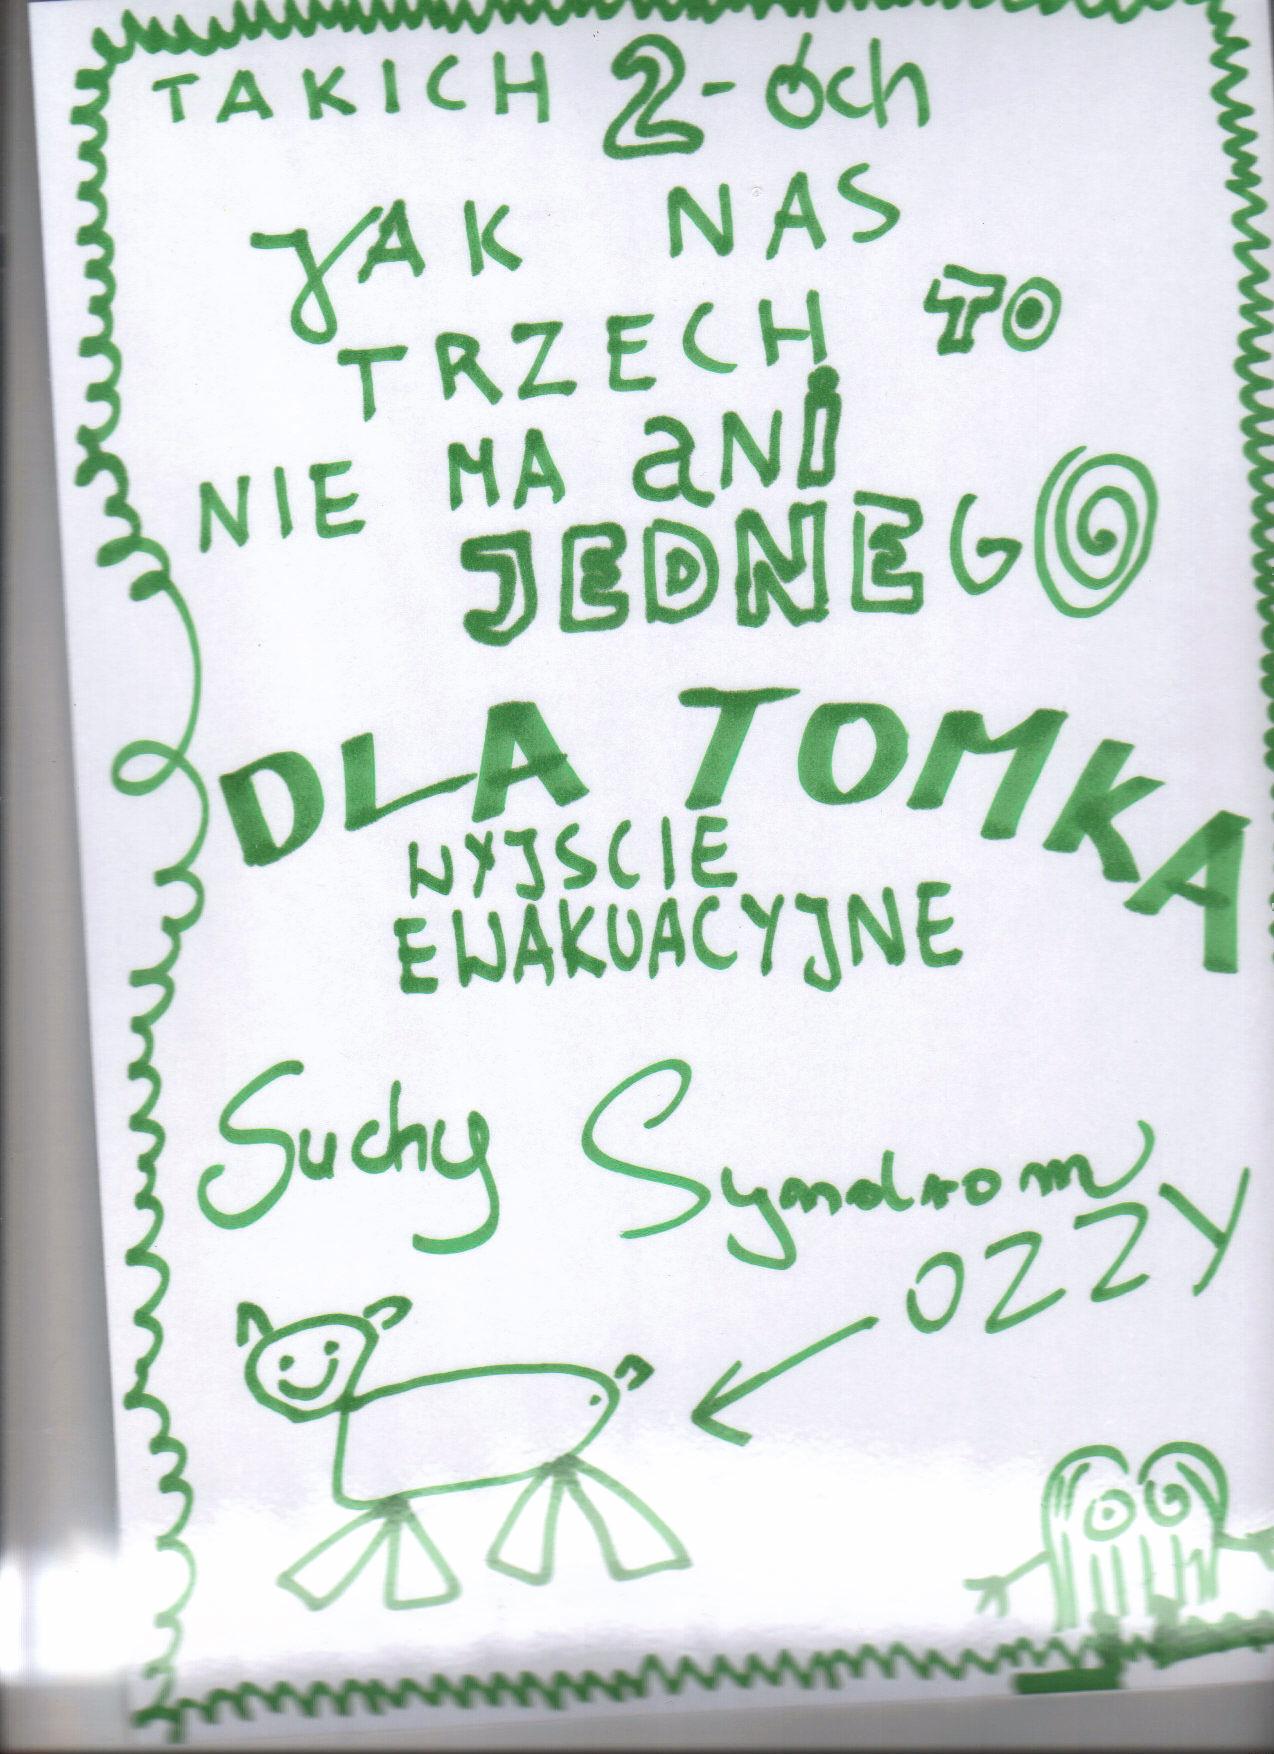 TAKICH 2-óch
JAK NAS
TRZECH TO
NIE MA aNi
JEDNEGO
DLA TOMKA
WYJSCIE
EWAKUACYJNE
Suchy Syndrom
OZZY